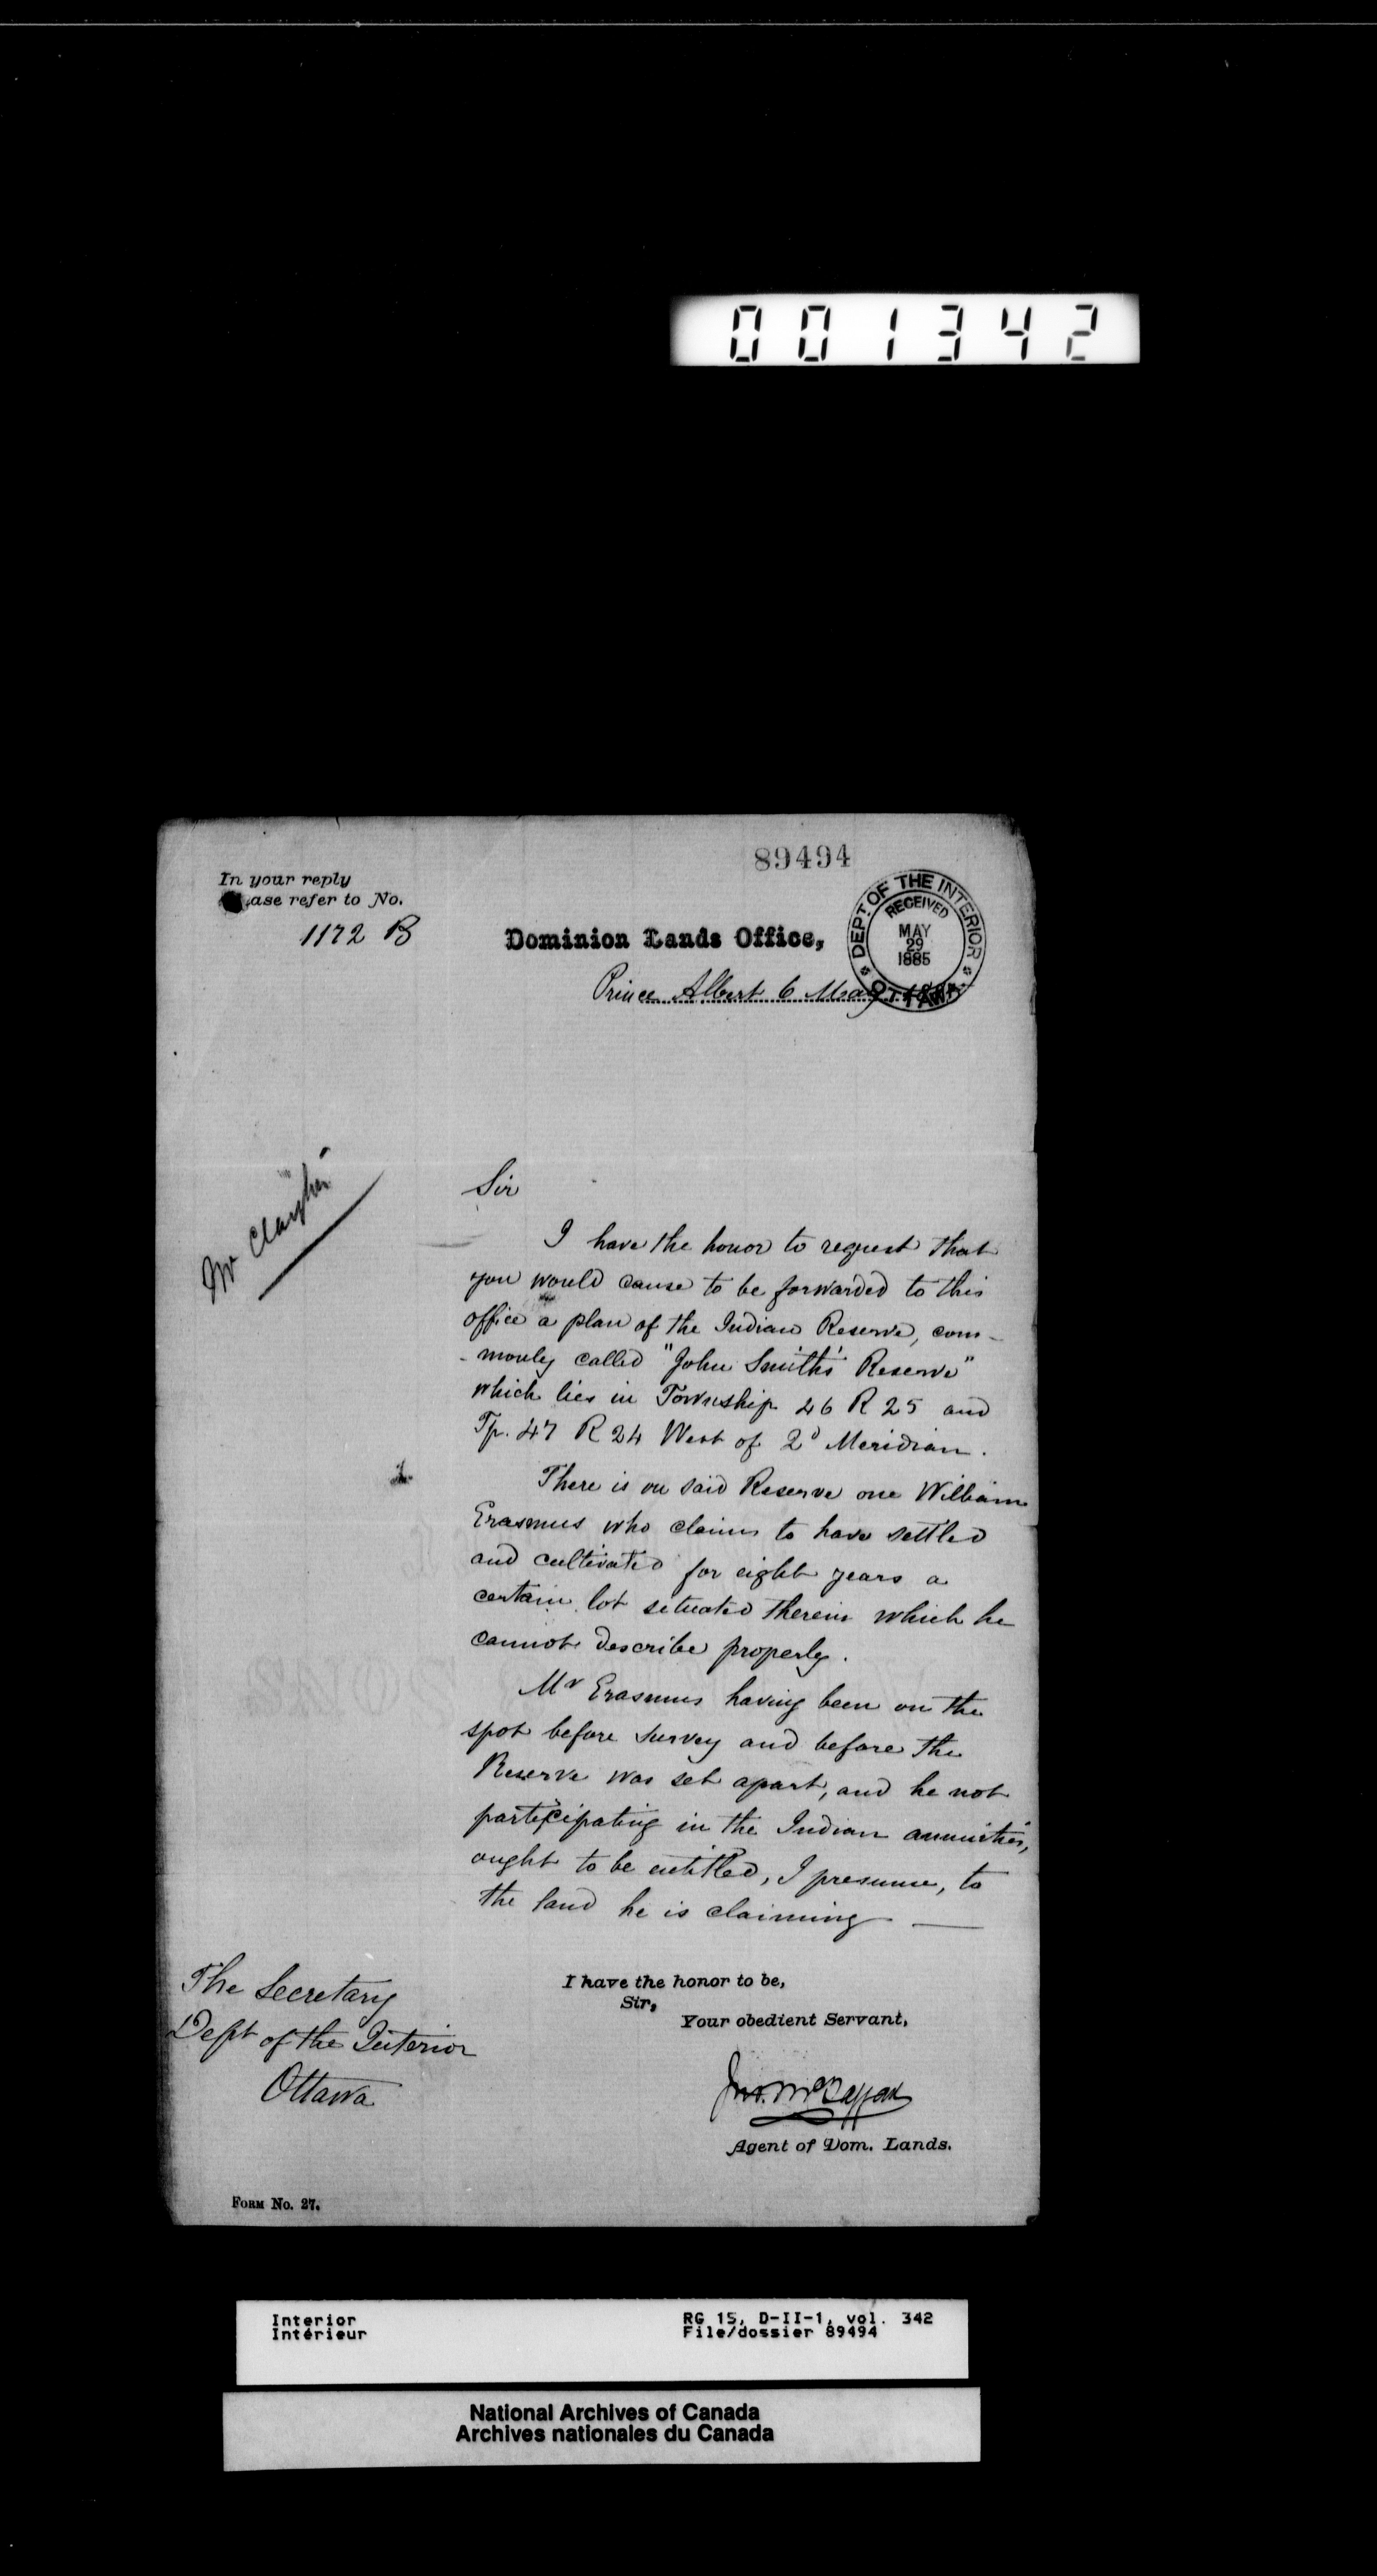 001342
89494
In your reply
ase refer to No.
1172 B
Dominion Lands Office,
DEPT. OF THE INTERIOR
RECEIVED
MAY
29
1885
OTTAWA
Prince Albert 6 May
Mr
Sir
I have the honor to request that
you would cause to be forwarded to this
office a plan of the Indian Reserve, com-
-monly called "John Smith's Reserve"
which lies in Township 46 R 25 and
Tp. 47 R 24 West of 2d Meridian.
There is on said Reserve one William
Erasmus who claims to have settled
and cultivated for eight years a
certain lot situated therein which he
cannot describe properly.
Mr Erasmus having been on the
spot before survey and before the
Reserve was set apart, and he not
participating in the Indian annuities,
ought to be entitled, I presume, to
the land he is claiming —
The Secretary
Dept of the Interior
Ottawa
I have the honor to be,
Sir,
Your obedient Servant,
Agent of Dom. Lands.
Form No. 27.
Interior
Intérieur
RG 15, D-II-1, vol. 342
File/dossier 89494
National Archives of Canada
Archives nationales du Canada